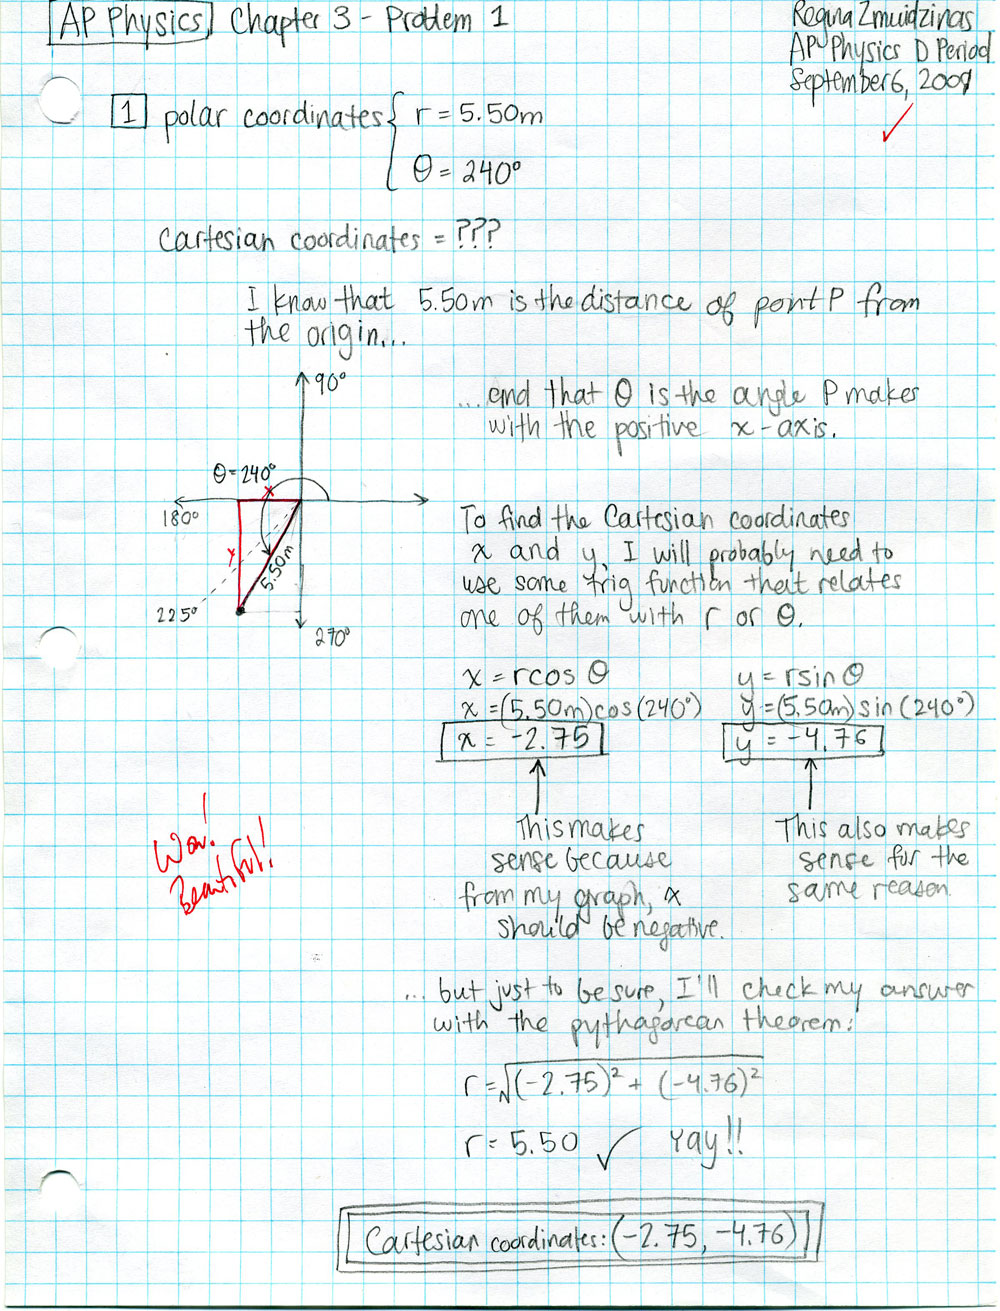 AP Physics Chapter 3 - Problem 1
Regina Zmuidzinas
AP Physics D Period
September 6, 2009
1 polar coordinates { r = 5.50m
θ = 240°
Cartesian coordinates = ???
I know that 5.50m is the distance of point P from
the origin...
90°
...and that θ is the angle P makes
with the positive x-axis.
θ = 240°
x
180°
y
5.50m
225°
270°
To find the Cartesian coordinates
x and y, I will probably need to
use some trig function that relates
one of them with r or θ.
x = rcos θ
x = (5.50m)cos(240°)
x = -2.75
y = rsin θ
y = (5.50m)sin(240°)
y = -4.76
This makes
sense because
from my graph, x
should be negative.
This also makes
sense for the
same reason.
Wow!
Beautiful!
... but just to be sure, I'll check my answer
with the pythagorean theorem:
r = √(-2.75)² + (-4.76)²
r = 5.50 ✓ Yay!!
Cartesian coordinates: (-2.75, -4.76)